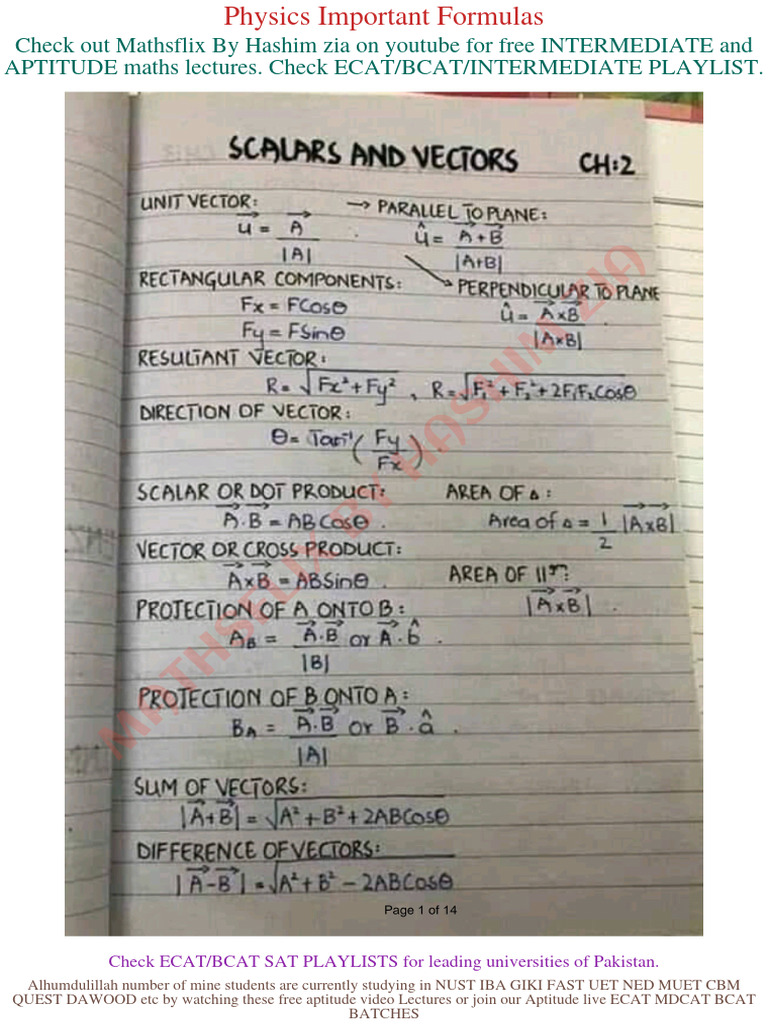 Physics Important Formulas
Check out Mathsflix By Hashim zia on youtube for free INTERMEDIATE and
APTITUDE maths lectures. Check ECAT/BCAT/INTERMEDIATE PLAYLIST.
SCALARS AND VECTORS CH:2
UNIT VECTOR: → PARALLEL TO PLANE:
u⃗ = A⃗ / |A| û = A⃗+B⃗ / |A+B|
RECTANGULAR COMPONENTS: → PERPENDICULAR TO PLANE
Fx = FCosθ û = A⃗×B⃗ / |A×B|
Fy = FSinθ
RESULTANT VECTOR:
R = √Fx²+Fy² , R=√F₁²+F₂²+2F₁F₂Cosθ
DIRECTION OF VECTOR:
θ = Tan⁻¹(Fy/Fx).
SCALAR OR DOT PRODUCT: AREA OF Δ:
A⃗.B⃗ = ABCosθ . Area of Δ = 1/2 |A⃗×B⃗|
VECTOR OR CROSS PRODUCT:
A⃗×B⃗ = ABSinθ . AREA OF 11gm:
PROJECTION OF A ONTO B: |A⃗×B⃗| .
A_B = A⃗.B⃗ / |B| or A⃗.b̂ .
PROJECTION OF B ONTO A:
B_A = A⃗.B⃗ / |A| or B⃗.â .
SUM OF VECTORS:
|A⃗+B⃗| = √A²+B²+2ABCosθ
DIFFERENCE OF VECTORS:
|A⃗-B⃗| = √A²+B²-2ABCosθ
MATHSFLIX BY HASHIM ZIA
Page 1 of 14
Check ECAT/BCAT SAT PLAYLISTS for leading universities of Pakistan.
Alhumdulillah number of mine students are currently studying in NUST IBA GIKI FAST UET NED MUET CBM
QUEST DAWOOD etc by watching these free aptitude video Lectures or join our Aptitude live ECAT MDCAT BCAT
BATCHES